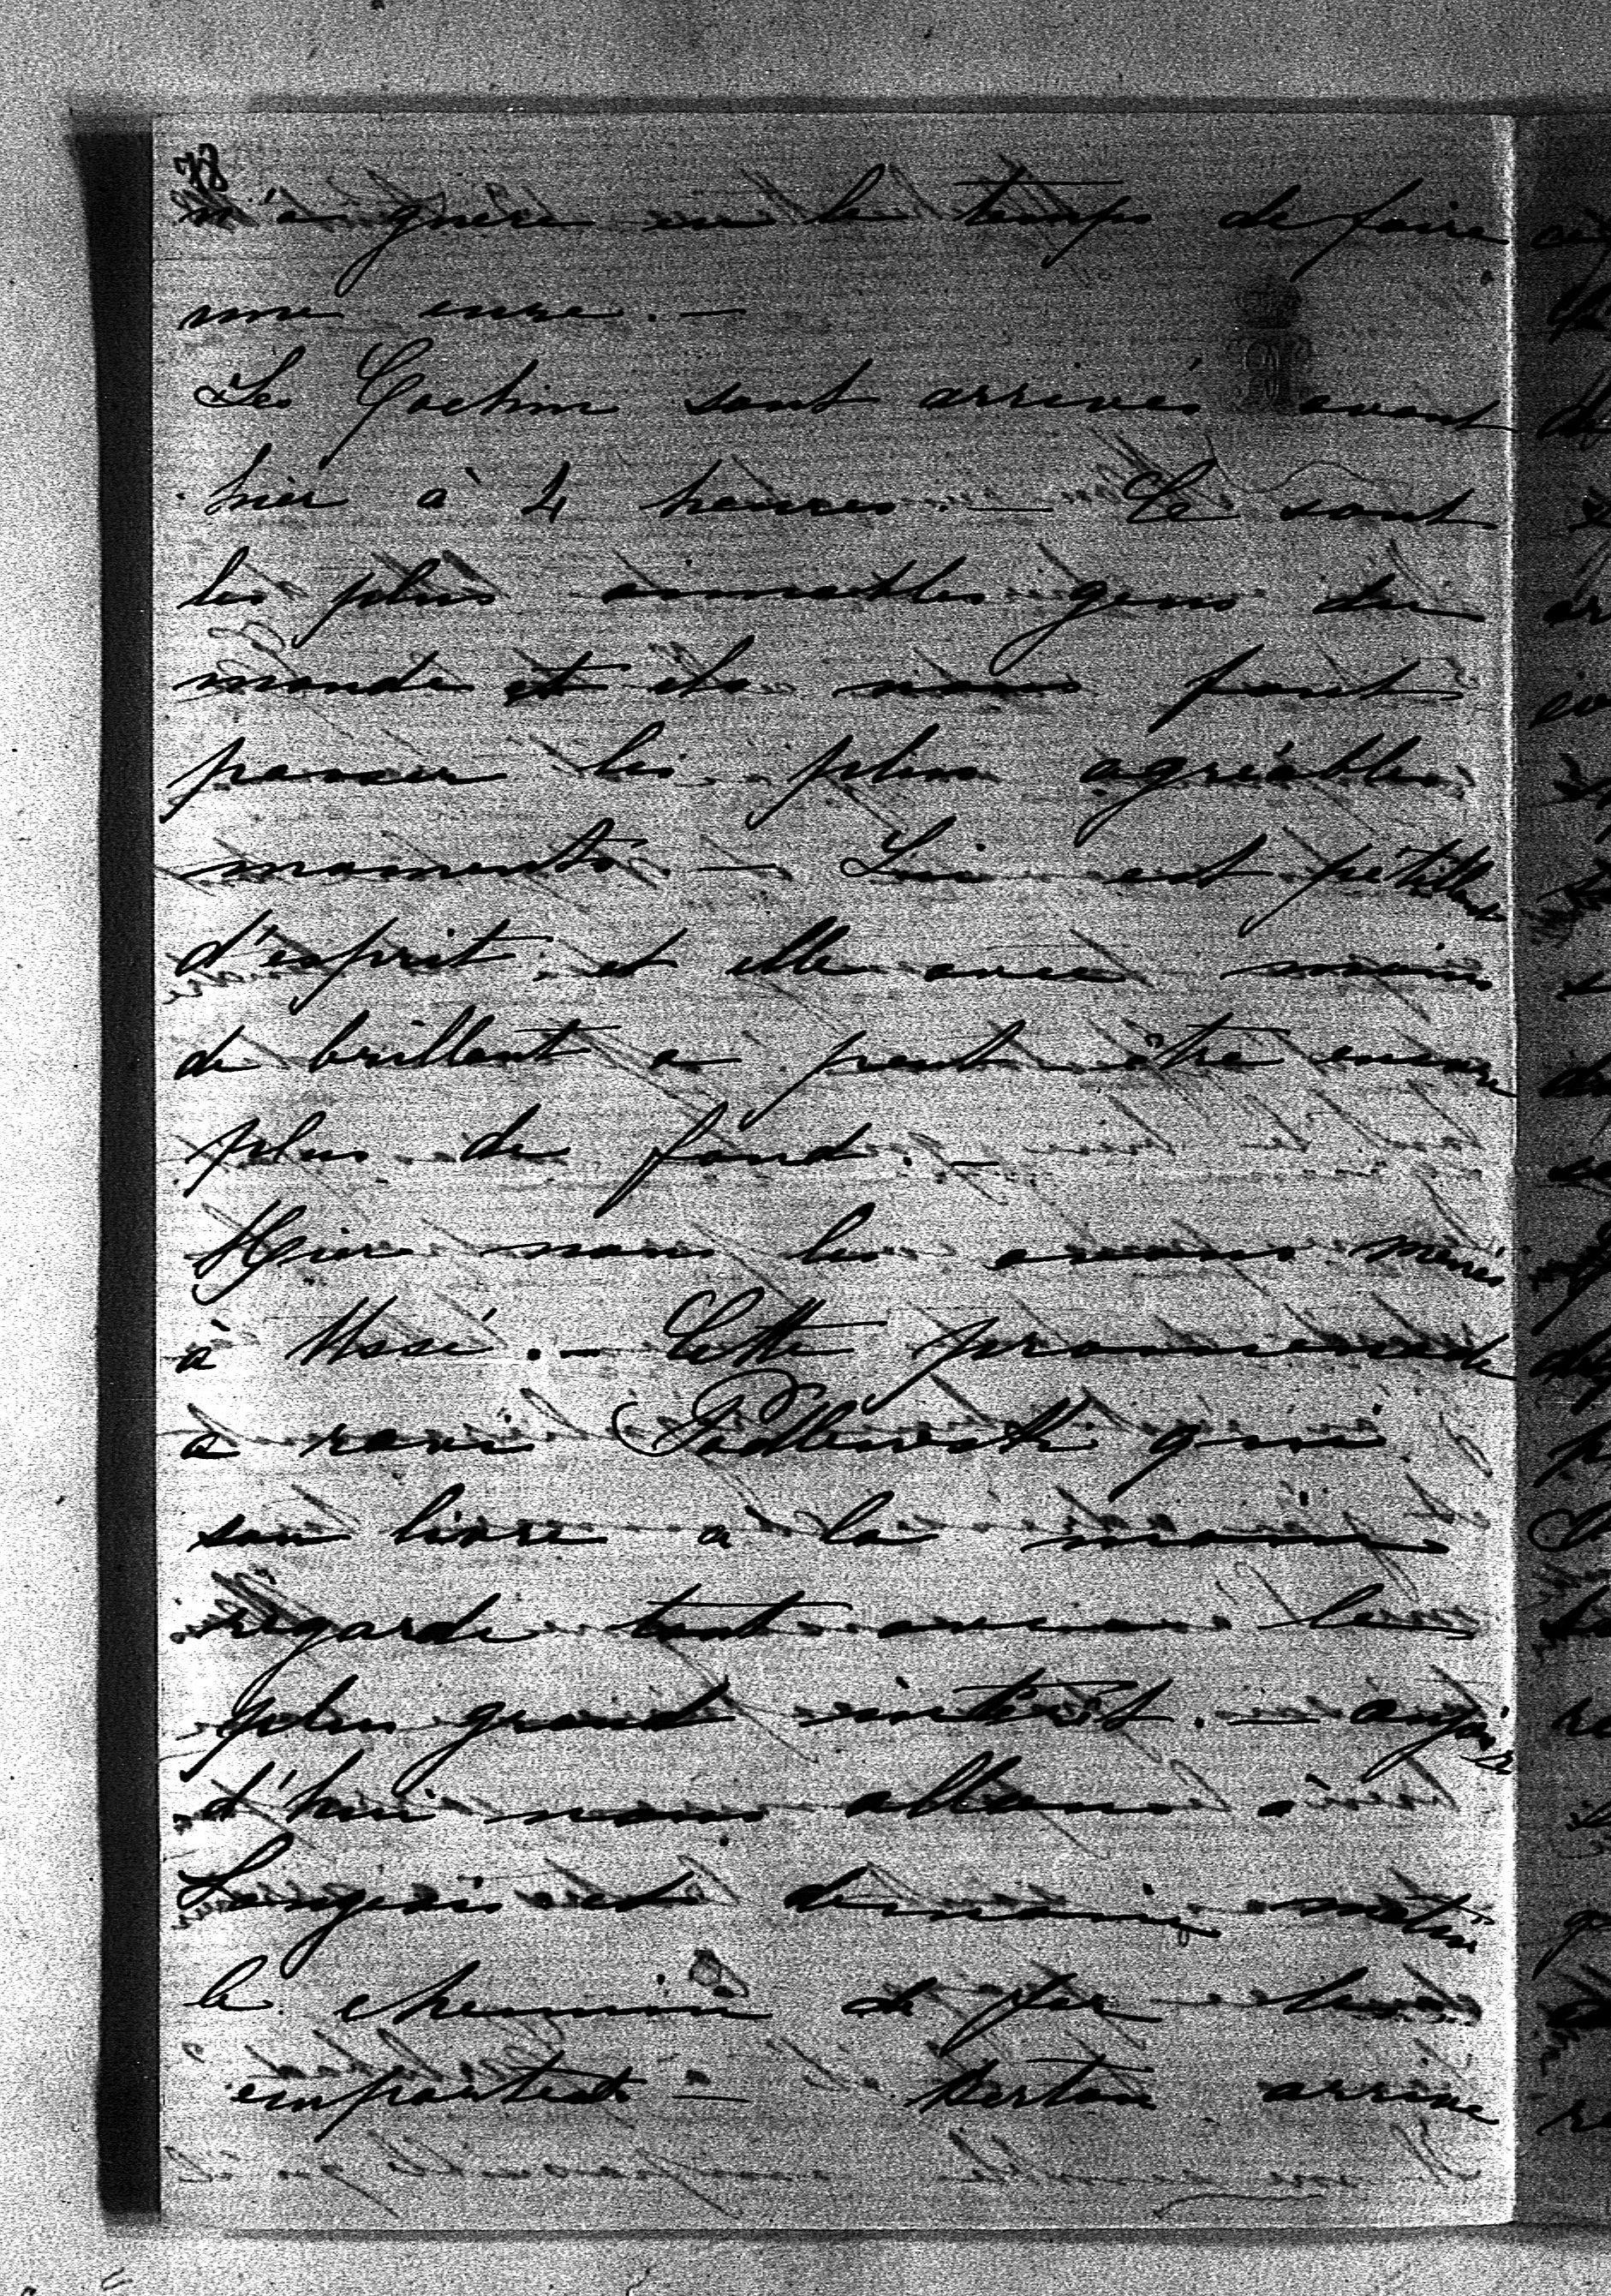 78
n'a guere eu le temps de faire
une cure. —
Les Cochin sont arrivés avant
hier à 4 heures. — Ce sont
les plus aimables gens du
monde et ils nous font
passer les plus agréables
moments. — Lui est pétillant
d'esprit et elle avec moins
de brillant a peut être encore
plus de fond. —
Hier nous les avons menés
à Ussé. — Cette promenade
a ravi Podlewski qui
son livre à la main
regarde tout avec le
plus grand intérêt. — aujour
d'hui nous allons à
Langeais et demain matin
le chemin de fer les
emportera — arrive